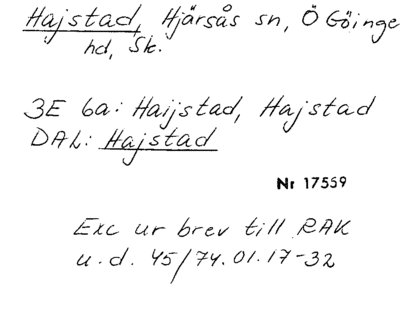 Hajstad, Hjärsås sn, Ö Göinge
hd, Sk.
3E 6a: Haijstad, Hajstad
DAL: Hajstad
Nr 17559
Exc ur brev till RAK
u.d. 45/74.01.17-32